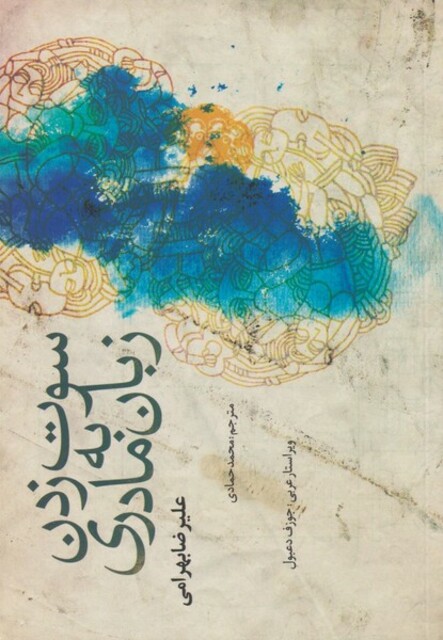 سوت زدن
به
زبان مادری
علیرضا بهرامی
مترجم: محمد حمادی
ویراستار عربی: جوزف دعبول